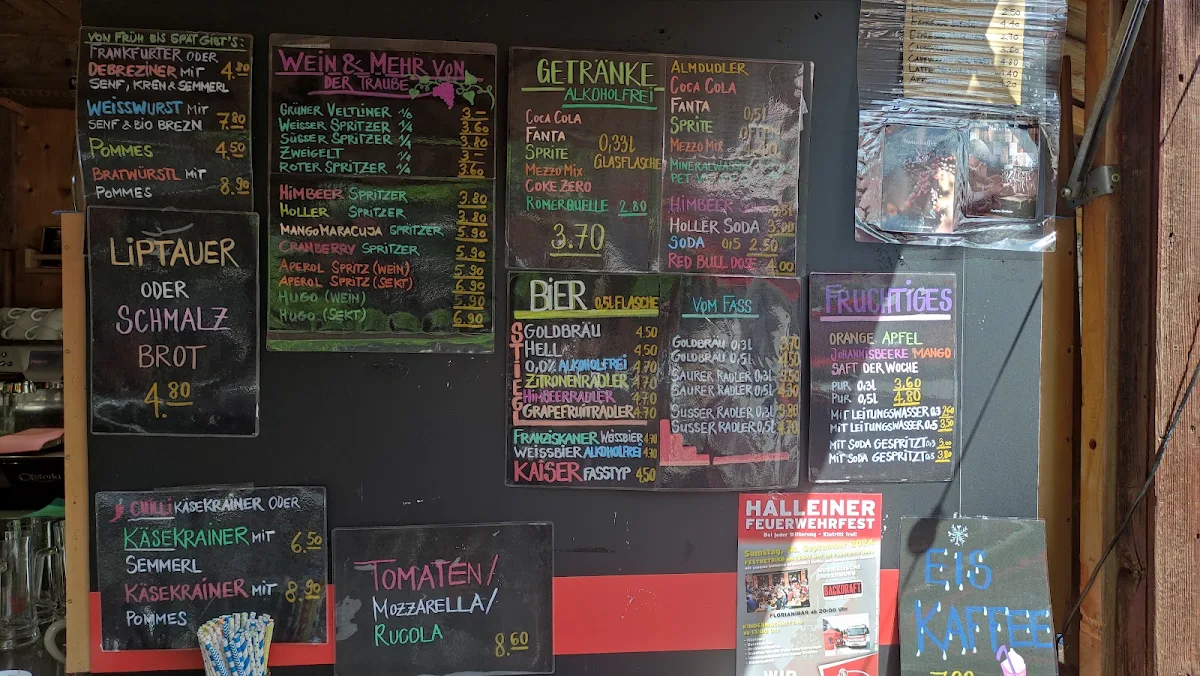 VON FRÜH BIS SPÄT GIBT'S:
FRANKFURTER ODER
DEBREZINER MIT 4.80
SENF, KREN & SEMMERL
WEISSWURST MIT
SENF & BIO BREZN 7.80
POMMES 4.50
BRATWÜRSTL MIT
POMMES 8.90
LIPTAUER
ODER
SCHMALZ
BROT
4.80
CHILLI KÄSEKRAINER ODER
KÄSEKRAINER MIT 6.50
SEMMERL
KÄSEKRAINER MIT 8.90
POMMES
WEIN & MEHR VON
DER TRAUBE
GRÜNER VELTLINER 1/8 3.-
WEISSER SPRITZER 1/4 3.60
SÜSSER SPRITZER 1/4 3.80
ZWEIGELT 1/8 3.-
ROTER SPRITZER 1/4 3.60
HIMBEER SPRITZER 3.80
HOLLER SPRITZER 3.80
MANGOMARACUJA SPRITZER 5.90
CRANBERRY SPRITZER 5.90
APEROL SPRITZ (WEIN) 5.90
APEROL SPRITZ (SEKT) 6.90
HUGO (WEIN) 5.90
HUGO (SEKT) 6.90
TOMATEN/
MOZZARELLA/
RUCOLA
8.60
GETRÄNKE
ALKOHOLFREI
COCA COLA
FANTA
SPRITE
MEZZO MIX
COKE ZERO
0,33L
GLASFLASCHE
RÖMERQUELLE 2.80
3.70
ALMDUDLER
COCA COLA
FANTA
SPRITE
0,5L
MEZZO MIX
MINERALWASSER
PET
HIMBEER
HOLLER SODA
SODA 0,5 2.50
RED BULL DOSE 4.00
BIER 0,5L FLASCHE
STIEGL
GOLDBRÄU 4.50
HELL 4.50
0,0% ALKOHOLFREI 4.70
ZITRONENRADLER 4.70
HIMBEERRADLER 4.70
GRAPEFRUITRADLER 4.70
FRANZISKANER WEISSBIER 4.70
WEISSBIER ALKOHOLFREI 4.70
KAISER FASSTYP 4.50
VOM FASS
GOLDBRÄU 0,3L
GOLDBRÄU 0,5L
SAURER RADLER 0,3L
SAURER RADLER 0,5L
SÜSSER RADLER 0,3L
SÜSSER RADLER 0,5L
FRUCHTIGES
ORANGE APFEL
JOHANNISBEERE MANGO
SAFT DER WOCHE
PUR 0,3L 3.60
PUR 0,5L 4.80
MIT LEITUNGSWASSER 0,3 2.60
MIT LEITUNGSWASSER 0,5 3.50
MIT SODA GESPRITZT 0,3
MIT SODA GESPRITZT 0,5 3.80
HALLEINER
FEUERWEHRFEST
Bei jeder Witterung - Eintritt frei!
BACKDRAFT
FLORIANIBAR ab 20:00 Uhr
WIR
EIS
KAFFEE